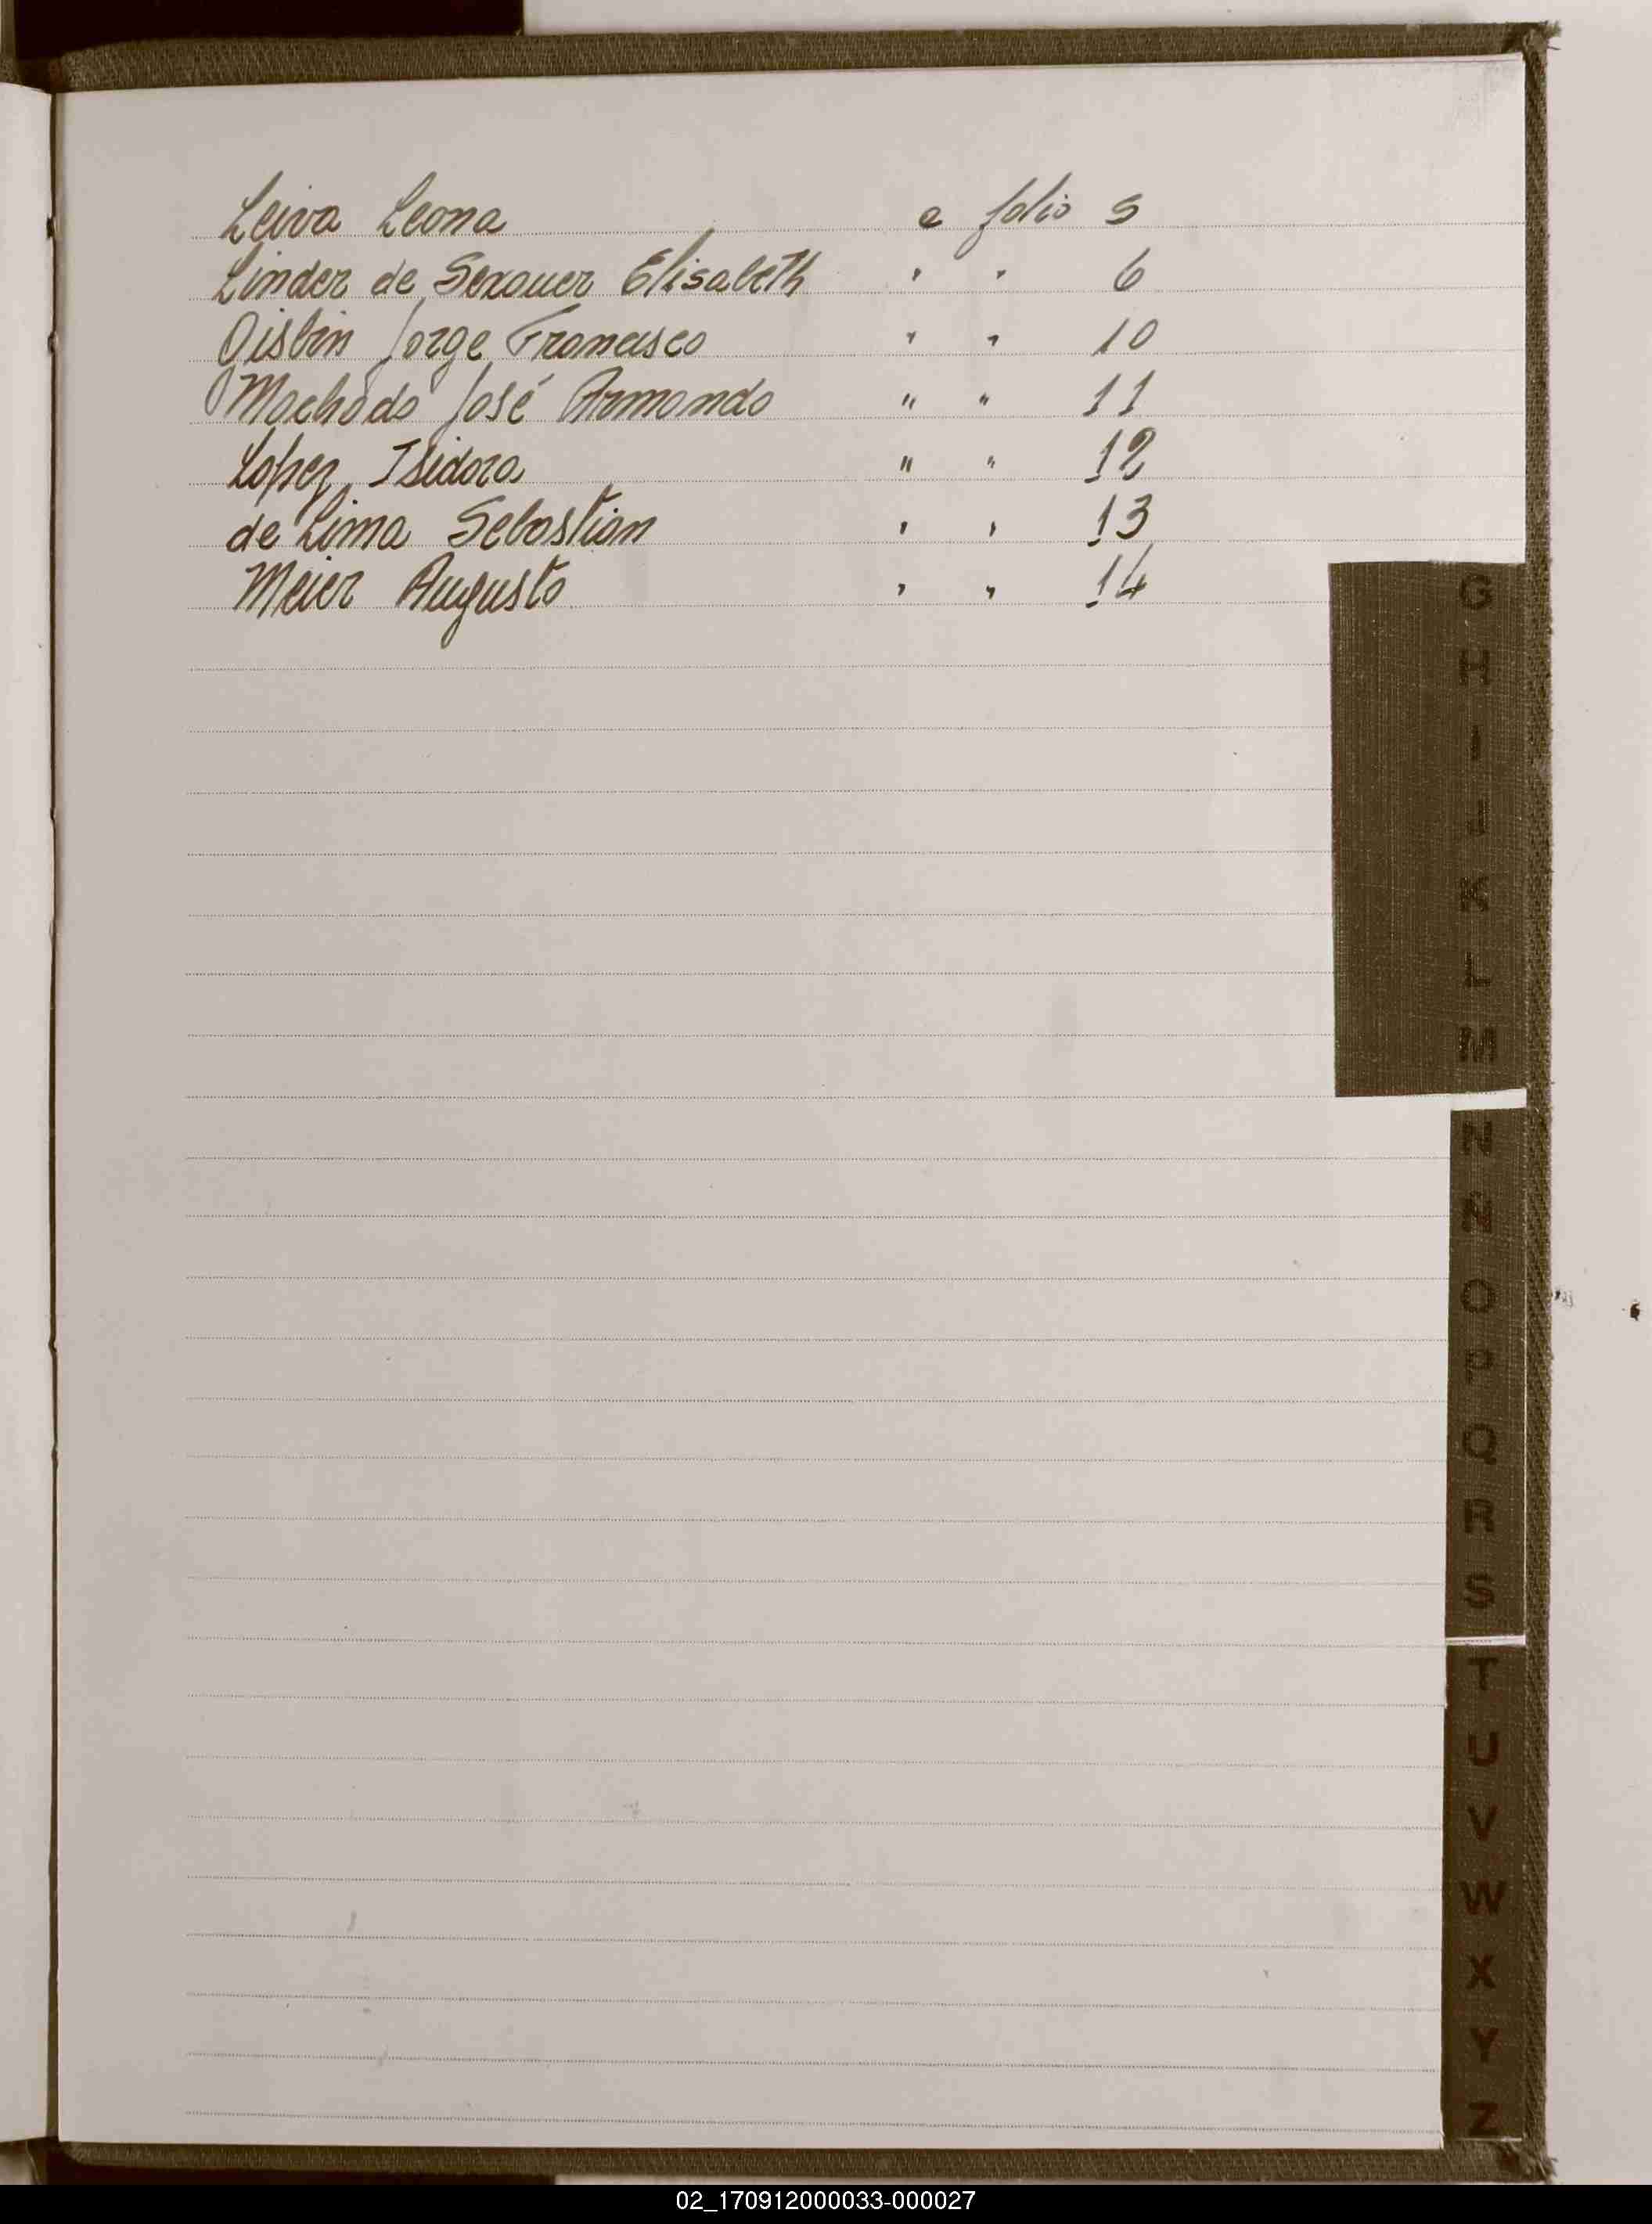 Leiva Leona a folio 5
Linder de Sexauer Elisabeth " " 6
Jorge Francisco " " 10
Machado José Armando " " 11
Lopez, Isidora " " 12
de Lima Sebastian " " 13
Meier Augusto " " 14
G
H
I
J
K
L
M
N
Ñ
O
P
Q
R
S
T
U
V
W
X
Y
Z
02_170912000033-000027